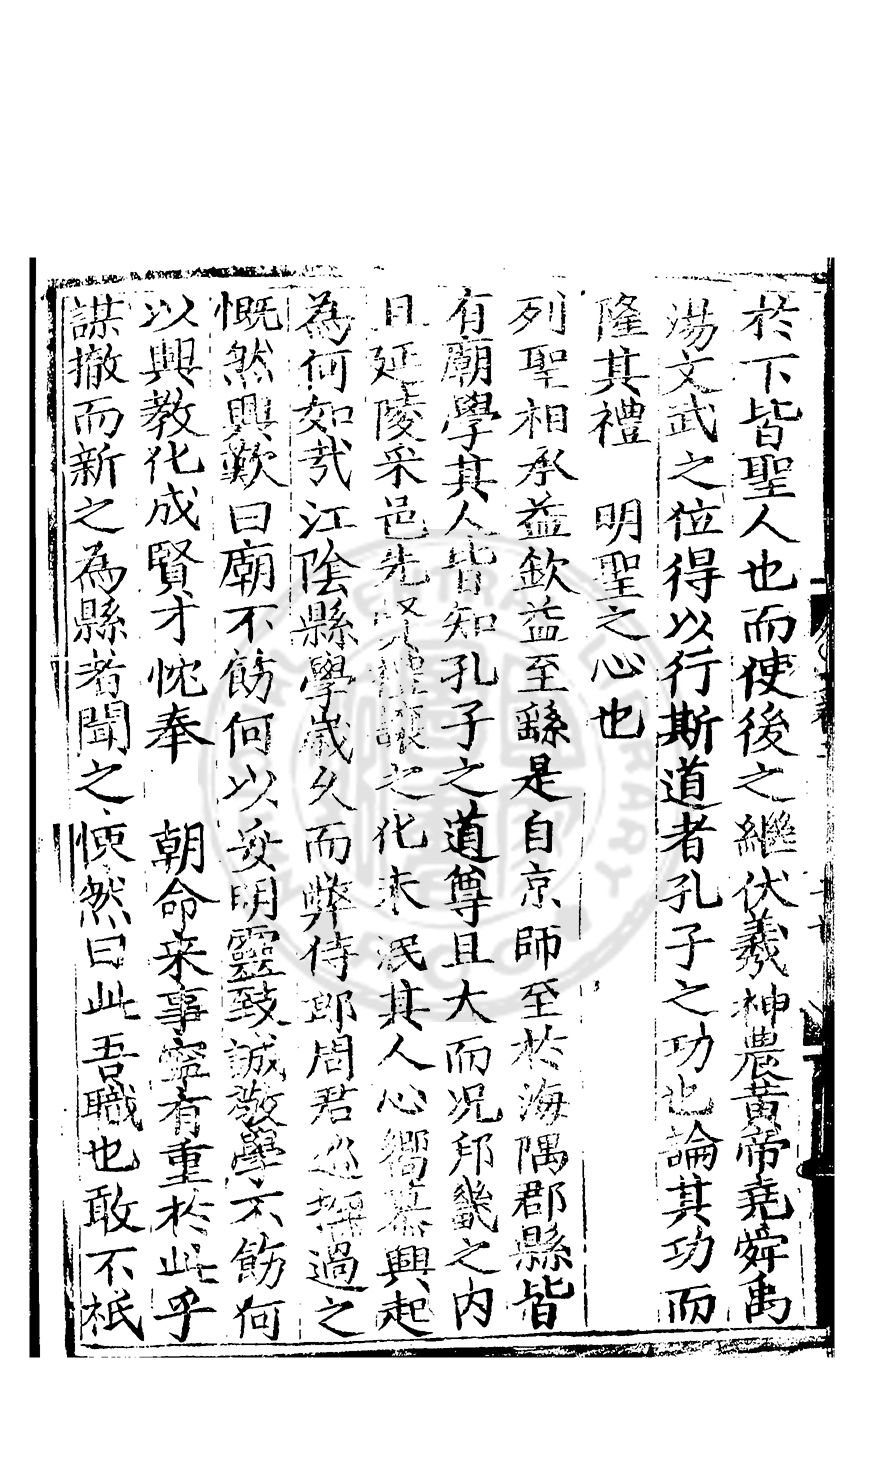 於下皆聖人也而使後之繼伏羲神農黃帝堯舜禹
湯文武之位得以行斯道者孔子之功也論其功而
隆其禮　明聖之心也
列聖相承益欽益至繇是自京師至於海隅郡縣皆
有廟學其人皆知孔子之道尊且大而況邦畿之内
且延陵采邑先賢禮讓之化未泯其人心嚮慕興起
為何如㢤江陰縣學歲久而弊侍郎周君巡撫過之
慨然興歎曰廟不飭何以妥明靈致誠敬學不飭何
以興教化成賢才忱奉　朝命来事寕有重於此乎
謀撤而新之為縣者聞之悚然曰此吾職也敢不祗